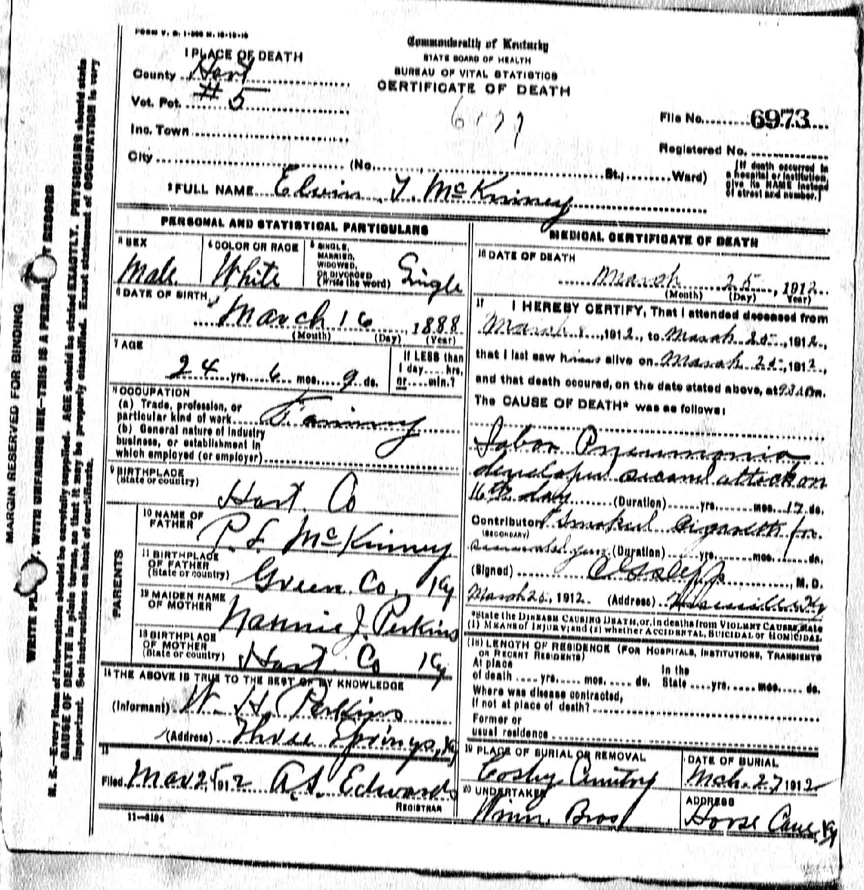 FORM V. S. 1-
Commonwealth of Kentucky
STATE BOARD OF HEALTH
BUREAU OF VITAL STATISTICS
CERTIFICATE OF DEATH
1 PLACE OF DEATH
County Hart
Vot. Pct. #5
Inc. Town
City (No. St.; Ward)
File No. 6973
Registered No.
(If death occurred in a hospital or institution give its NAME instead of street and number.)
2 FULL NAME Elwin T. McKinney
PERSONAL AND STATISTICAL PARTICULARS
3 SEX
Male
4 COLOR OR RACE
White
5 SINGLE, MARRIED, WIDOWED, OR DIVORCED (Write the word)
Single
6 DATE OF BIRTH
March 16, 1888
(Month) (Day) (Year)
7 AGE
24 yrs. 6 mos. 9 ds.
If LESS than 1 day.... hrs. or.... min.?
8 OCCUPATION
(a) Trade, profession, or particular kind of work
(b) General nature of industry business, or establishment in which employed (or employer)
9 BIRTHPLACE (State or country)
Hart Co
PARENTS
10 NAME OF FATHER
McKinney
11 BIRTHPLACE OF FATHER (State or country)
Green Co. Ky
12 MAIDEN NAME OF MOTHER
Nannie J. Perkins
13 BIRTHPLACE OF MOTHER (State or country)
Hart Co Ky
14 THE ABOVE IS TRUE TO THE BEST OF MY KNOWLEDGE
(Informant) W. H. Perkins
(Address) Three Springs, Ky
15
Filed Mar 25 1912 A.S. Edwards
REGISTRAR
11-6184
MEDICAL CERTIFICATE OF DEATH
16 DATE OF DEATH
March 25, 1912
(Month) (Day) (Year)
17 I HEREBY CERTIFY, That I attended deceased from
March 1912, to March 25, 1912,
that I last saw him alive on March 25, 1912,
and that death occured, on the date stated above, at m.
The CAUSE OF DEATH* was as follows:
Lobar Pneumonia
developed second attack on
16th day (Duration) yrs. mos. 17 ds.
Contributory Smoked for
(SECONDARY)
(Duration) yrs. mos. ds.
(Signed) M. D.
March 26, 1912. (Address)
*State the DISEASE CAUSING DEATH, or, in deaths from VIOLENT CAUSES, state (1) MEANS OF INJURY; and (2) whether ACCIDENTAL, SUICIDAL or HOMICIDAL.
(18) LENGTH OF RESIDENCE (FOR HOSPITALS, INSTITUTIONS, TRANSIENTS OR RECENT RESIDENTS)
At place of death yrs. mos. ds. In the State yrs. mos. ds.
Where was disease contracted, if not at place of death?
Former or usual residence
19 PLACE OF BURIAL OR REMOVAL
Cosby Cemetry
DATE OF BURIAL
Mch. 27 1912
20 UNDERTAKER
Winn Bros
ADDRESS
Horse Cave Ky
MARGIN RESERVED FOR BINDING
N. B.—Every item of information should be carefully supplied. AGE should be stated EXACTLY. PHYSICIANS should state
CAUSE OF DEATH in plain terms, so that it may be properly classified. Exact statement of OCCUPATION is very
important. See instructions on back of certificate.